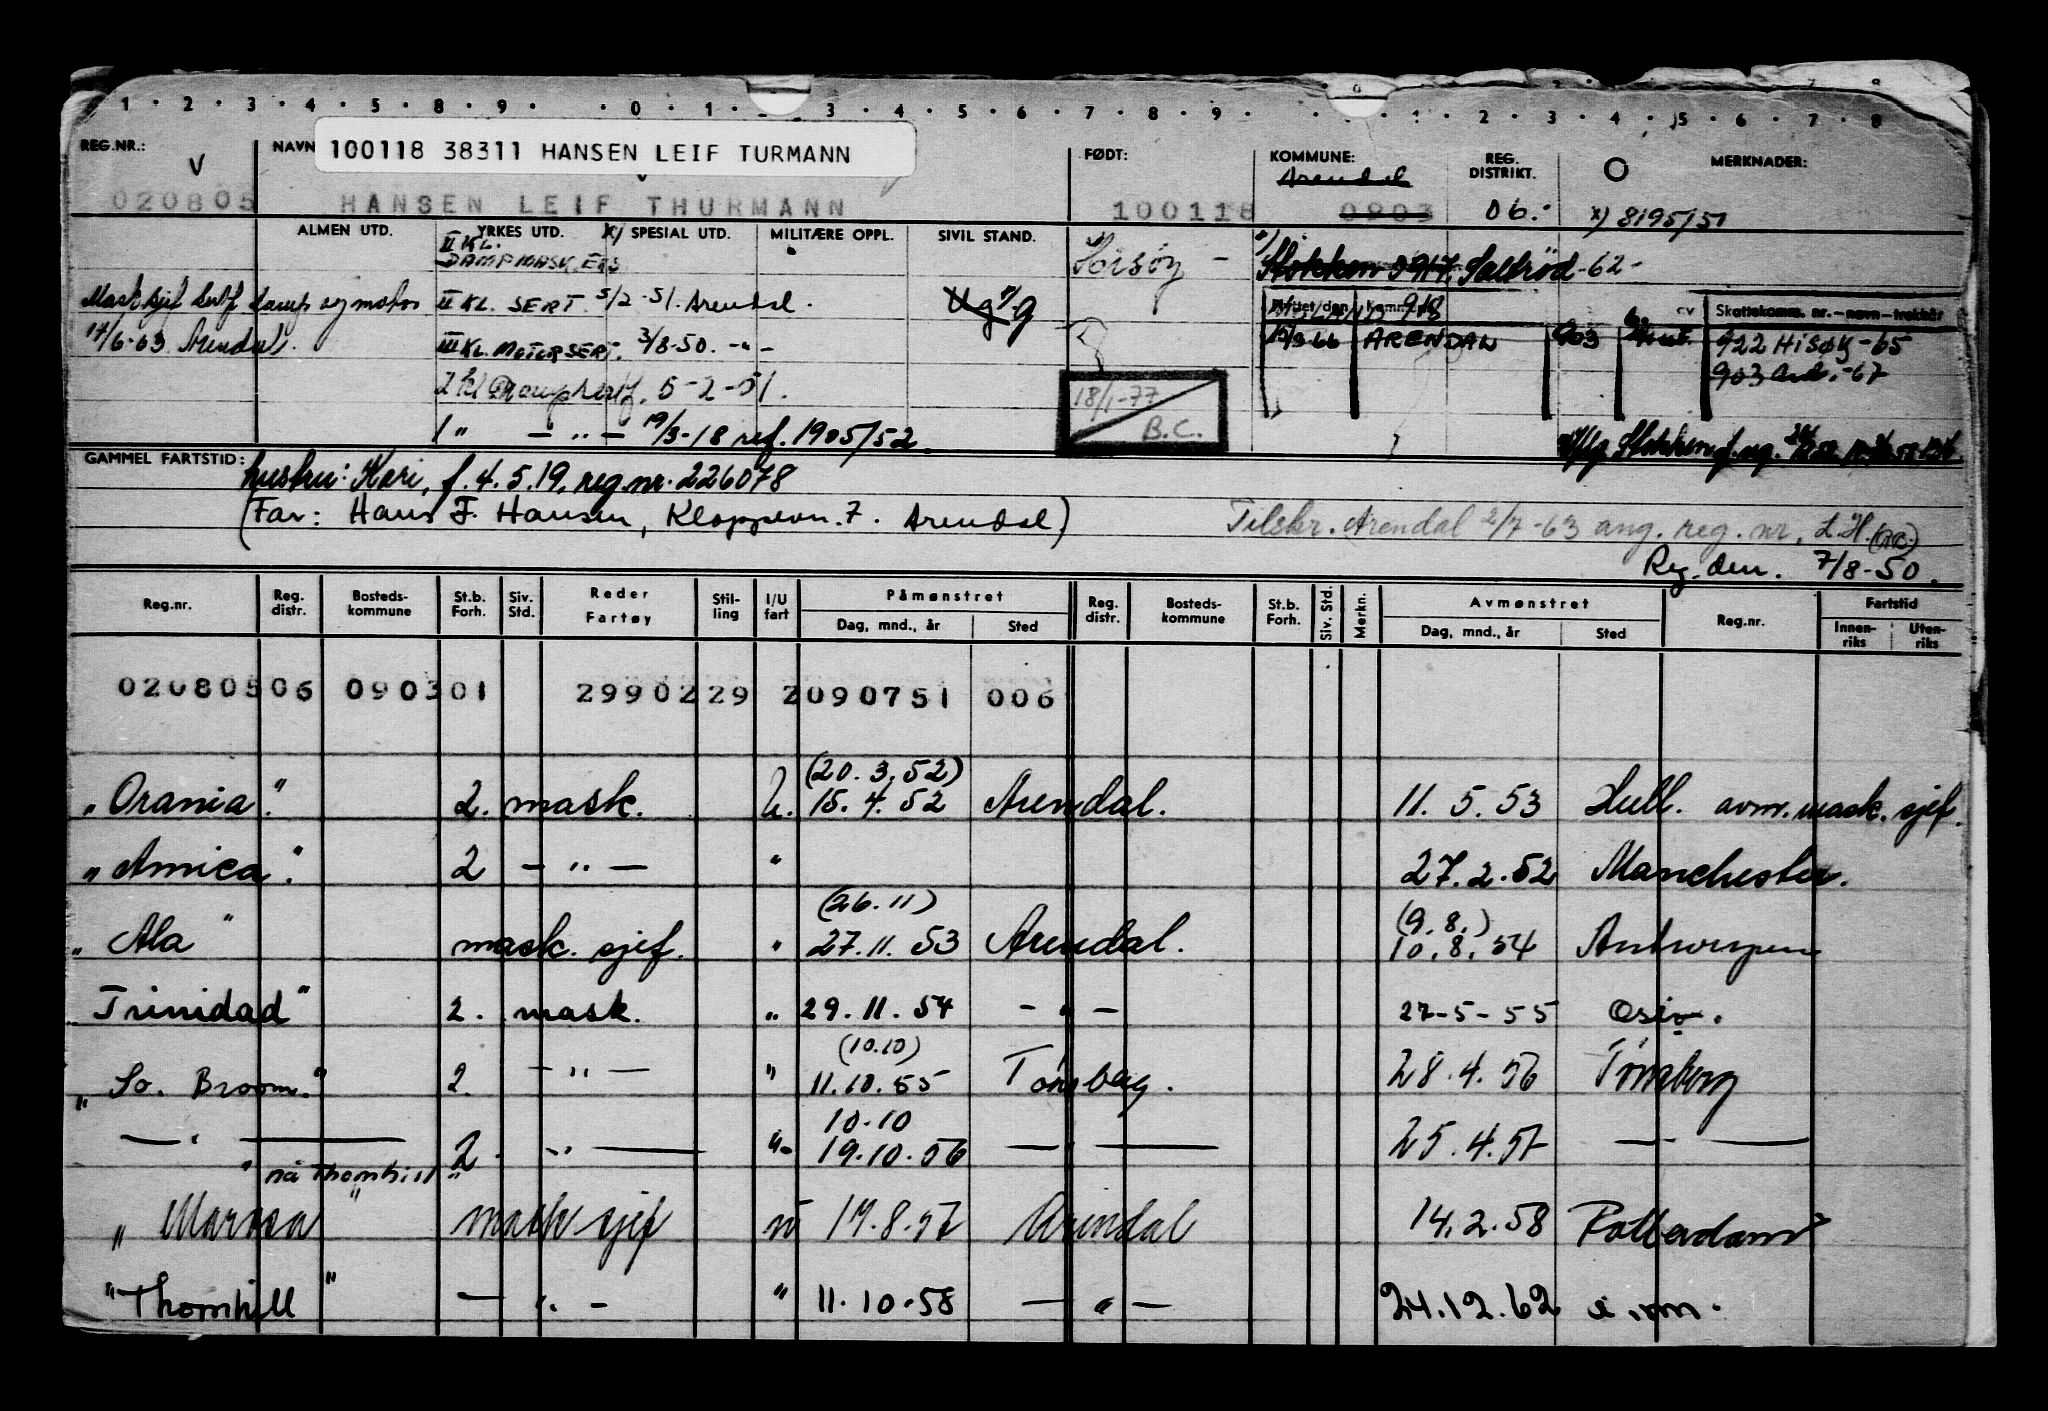 1 2 3 4 5 8 9 0 1 3 4 5 6 7 8 9 1 2 3 4 5 6 7 8
REG.NR.: NAVN 100118 38311 HANSEN LEIF TURMANN FØDT: KOMMUNE: REG. DISTRIKT. O MERKNADER:
V Arendal
020805 HANSEN LEIF THURMANN 100118 0903 06. x) 8195/51
ALMEN UTD. YRKES UTD. x) SPESIAL UTD. MILITÆRE OPPL. SIVIL STAND.
II KL. DAMPMASK. Hisøy - Stokken 0917 Saltrød -62-
Mask.sjef sertf damp og motor II KL. SERT. 5/2-51. Arendal. Ug g
Flyttet/den Komm. 918 cv Skattekomm. nr.—navn—trekkår
17/6-63 Arendal. III KL. MOTORSERT. 3/8-50. - " - 15/3 66 ARENDAL 903 922 Hisøy -65
903 Ard. -67
5-2-51. 18/1-77
1 " - " - 19/3-18 ref. 1905/52. B.C.
GAMMEL FARTSTID: hustru: Kari, f. 4.5.19, reg.nr. 226078
(Far: Hans F. Hansen, Kloppevn. 7. Arendal) Tilskr. Arendal 2/7-63 ang. reg. nr. L.H.
Reg. den. 7/8-50.
Reg.nr. Reg. distr. Bosteds-kommune St.b. Forh. Siv. Std. Reder Fartøy Stil-ling I/U fart Påmønstret Dag, mnd., år Sted Reg. distr. Bosteds-kommune St.b. Forh. Siv. Std. Merkn. Avmønstret Dag, mnd., år Sted Reg.nr. Fartstid Innen-riks Uten-riks
020805 06 0903 01 29902 29 2 090751 006
(20.3.52)
"Orania". 2. mask. U. 15.4.52 Arendal. 11.5.53 Hull. avm. mask. sjef.
"Amica". 2 - " - " 27.2.52 Manchester.
(26.11) (9.8.)
"Ala" mask. sjef. " 27.11.53 Arendal. 10.8.54 Antwerpen
"Trinidad" 2. mask. " 29.11.54 - " - 27-5-55
(10.10)
"So. Broom." 2. - " - " 11.10.55 Tønsberg. 28.4.56 Tønsberg
10.10
— " — 2. " — " 19.10.56 — " — 25.4.57 — " —
nå Thornhill "
"Marosa" mask sjef " 17.8.57 Arendal 14.2.58 Rotterdam
"Thornhill" - " - " 11.10.58 - " - 24.12.62